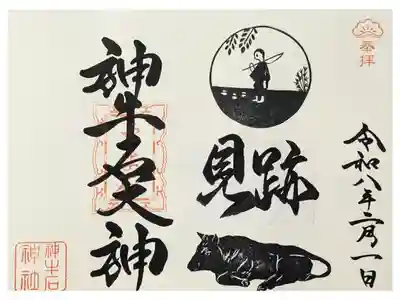 奉拝
令和八年二月一日
見跡
神牛石大神
神牛石
神社